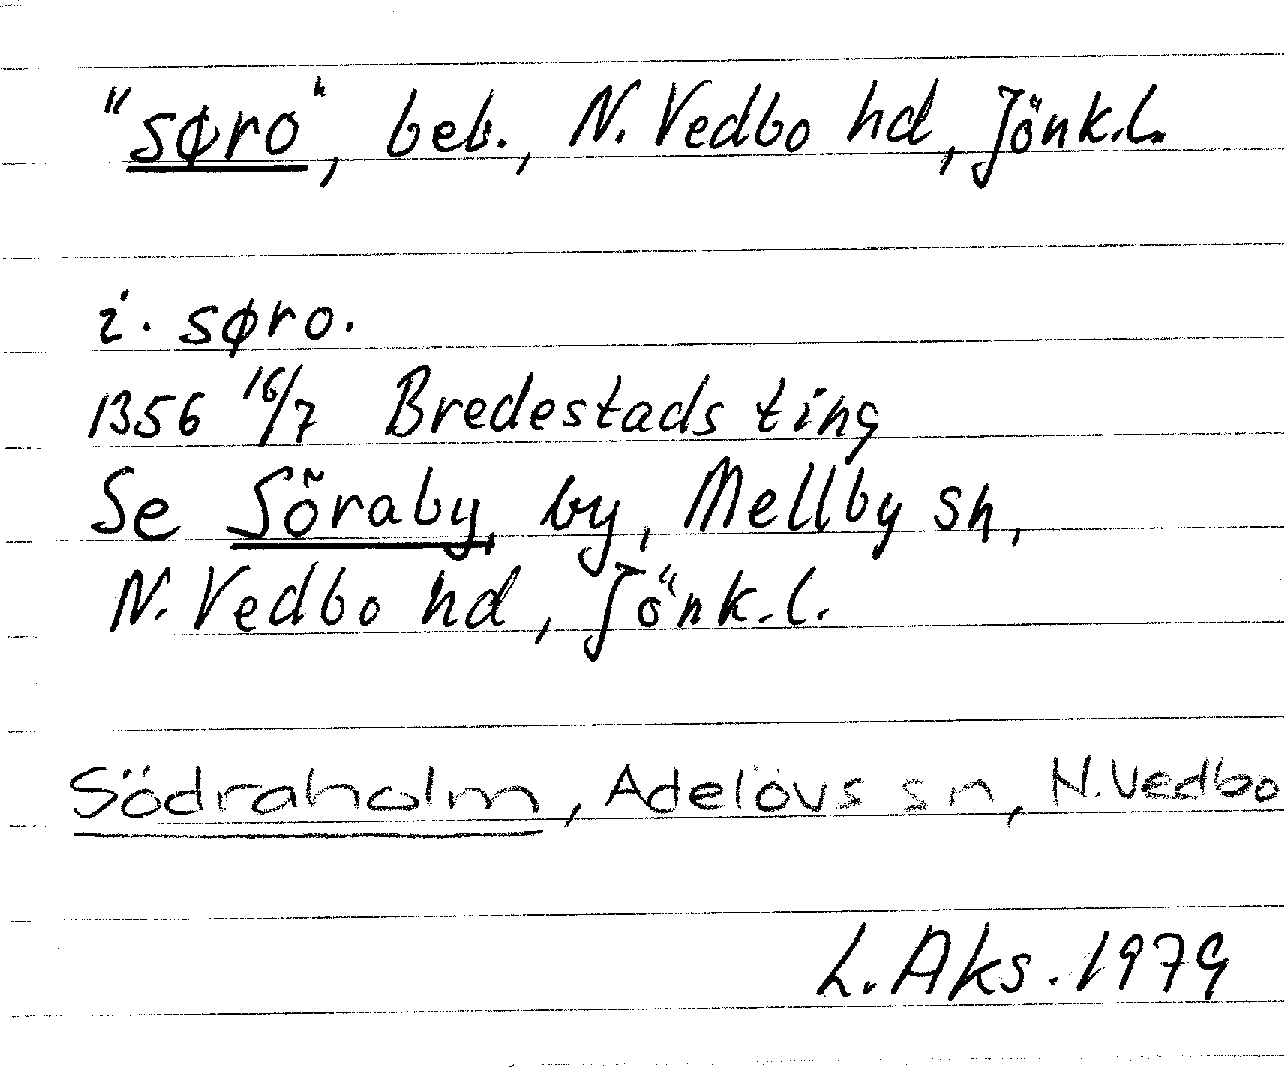 "søro", beb., N. Vedbo hd, Jönk.l.
i. søro.
1356 16/7 Bredestads ting
Se Söraby, by, Mellby sn,
N. Vedbo hd, Jönk.l.
Södraholm, Adelövs sn, N. Vedbo
L. Aks. 1979